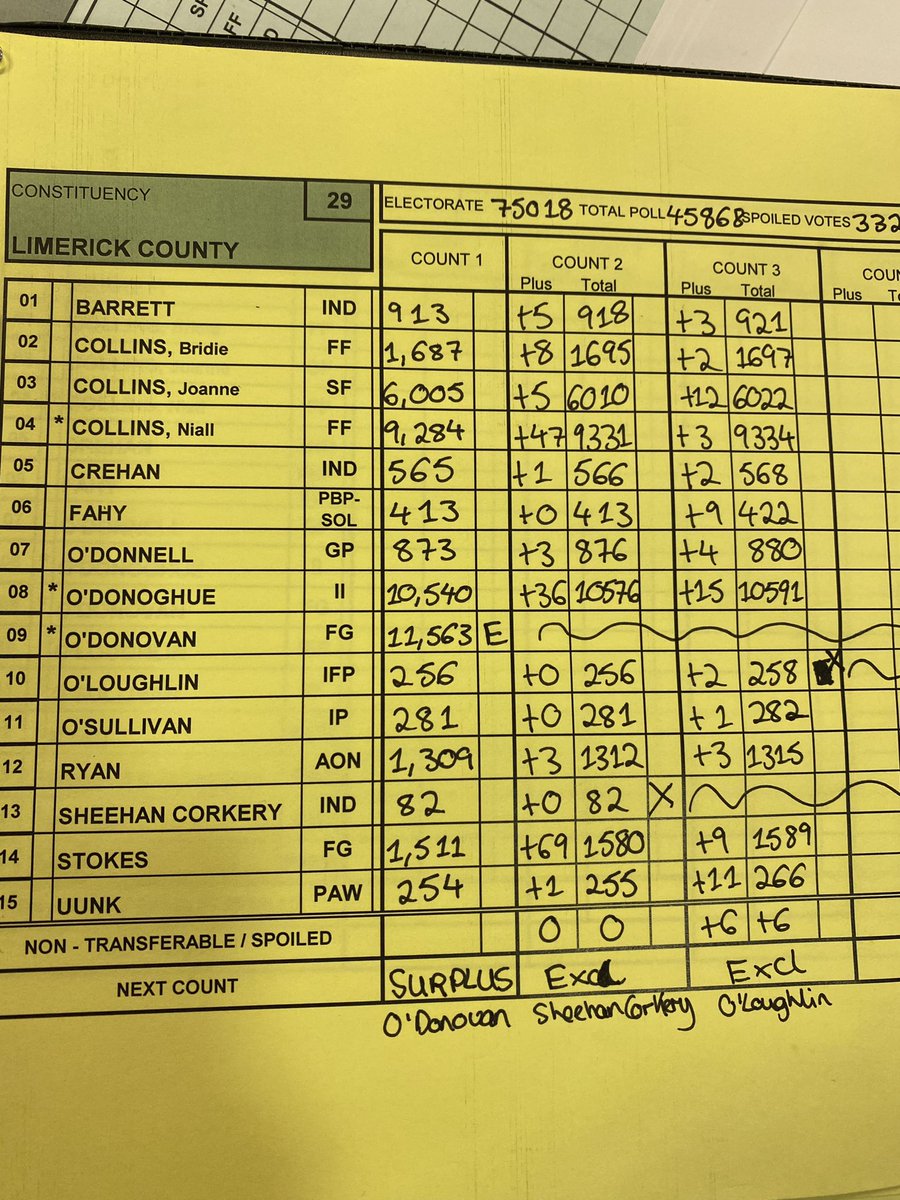 SF
FF
CONSTITUENCY 29 ELECTORATE 75018 TOTAL POLL 45868 SPOILED VOTES 332
LIMERICK COUNTY COUNT 1 COUNT 2 COUNT 3 COUN
Plus Total Plus Total Plus
01 BARRETT IND 913 +5 918 +3 921
02 COLLINS, Bridie FF 1,687 +8 1695 +2 1697
03 COLLINS, Joanne SF 6,005 +5 6010 +12 6022
04 * COLLINS, Niall FF 9,284 +47 9331 +3 9334
05 CREHAN IND 565 +1 566 +2 568
06 FAHY PBP-SOL 413 +0 413 +9 422
07 O'DONNELL GP 873 +3 876 +4 880
08 * O'DONOGHUE II 10,540 +36 10576 +15 10591
09 * O'DONOVAN FG 11,563 E
10 O'LOUGHLIN IFP 256 +0 256 +2 258 X
11 O'SULLIVAN IP 281 +0 281 +1 282
12 RYAN AON 1,309 +3 1312 +3 1315
13 SHEEHAN CORKERY IND 82 +0 82 X
14 STOKES FG 1,511 +69 1580 +9 1589
15 UUNK PAW 254 +1 255 +11 266
NON - TRANSFERABLE / SPOILED 0 0 +6 +6
NEXT COUNT SURPLUS Excl Excl
O'Donovan Sheehan Corkery O'Loughlin